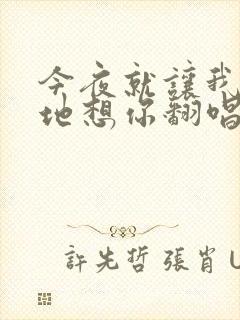 今夜就讓我
地想你翻唱
許先哲 張肖U